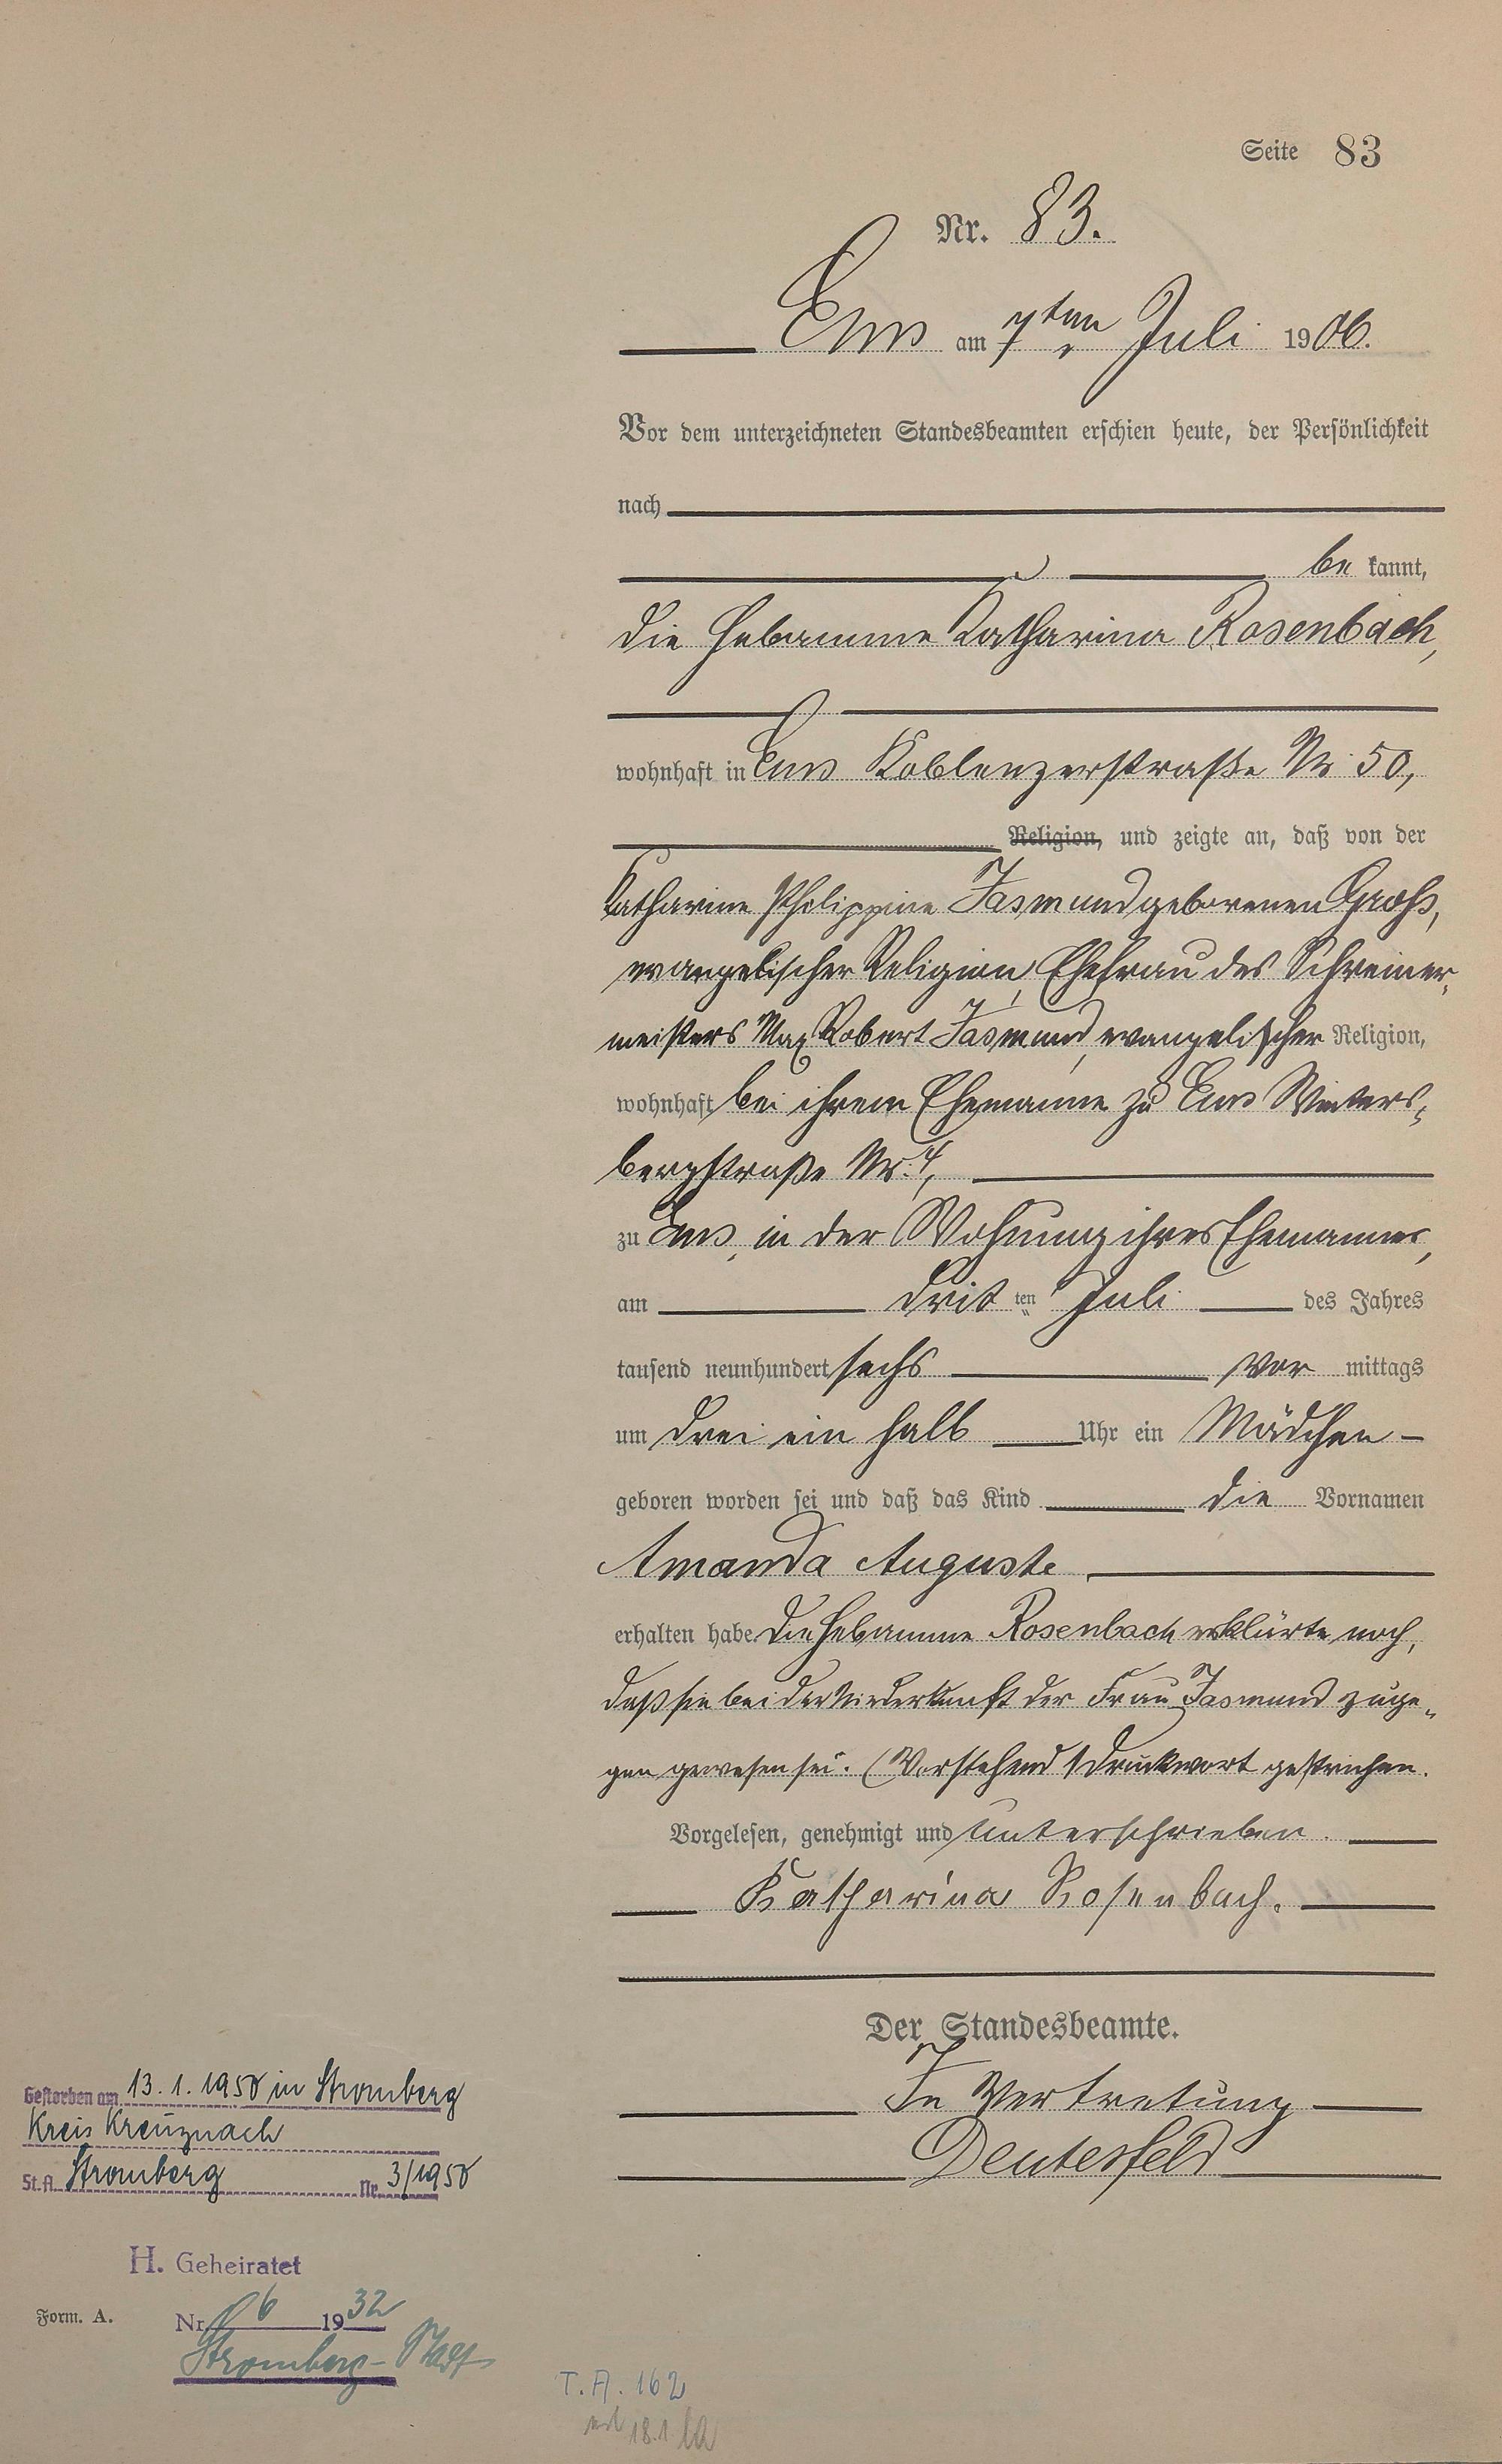 Seite 83
Nr. 83.
Ems am 7ten Juli 1906.
Vor dem unterzeichneten Standesbeamten erschien heute, der Persönlichkeit
nach
be kannt,
die Hebamme Katharina Rosenbach,
wohnhaft in Ems Koblenzerstraße Nr 50,
Religion, und zeigte an, daß von der
Katharine Philippine Jasmund geborenen Groß,
evangelischer Religion, Ehefrau des Schreiner-
meisters Max Robert Jasmund, evangelischer Religion,
wohnhaft bei ihrem Ehemanne zu Ems Winters-
bergstraße Nr. 4,
zu Ems, in der Wohnung ihres Ehemannes,
am drit ten Juli des Jahres
tausend neunhundert sechs vor mittags
um drei ein halb Uhr ein Mädchen
geboren worden sei und daß das Kind die Vornamen
Amanda Auguste
erhalten habe Die Hebamme Rosenbach erklärte noch,
daß sie bei der Niederkunft der Frau Jasmund zuge-
gen gewesen sei. (Vorstehend 1 Druckwort gestrichen.
Vorgelesen, genehmigt und unterschrieben.
Katharina Rosenbach.
Der Standesbeamte.
In Vertretung
Deutesfeld
Gestorben am 13. 1. 1950 in Stromberg
Kreis Kreuznach
St. A. Stromberg Nr. 3/1950
H. Geheiratet
Form. A. Nr. 6 1932
Stromberg-Stadt
T. A. 162
18.1.